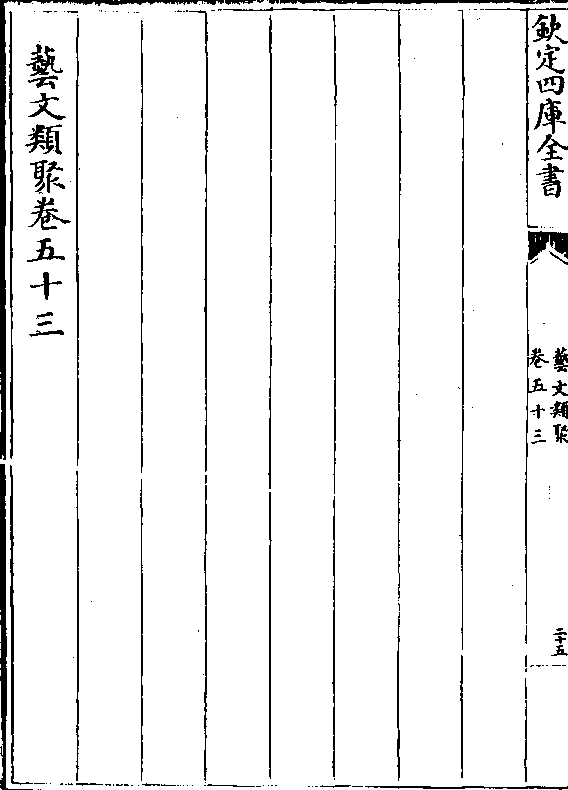 欽定四庫全書
藝文類聚
卷五十三
二十五
藝文類聚卷五十三